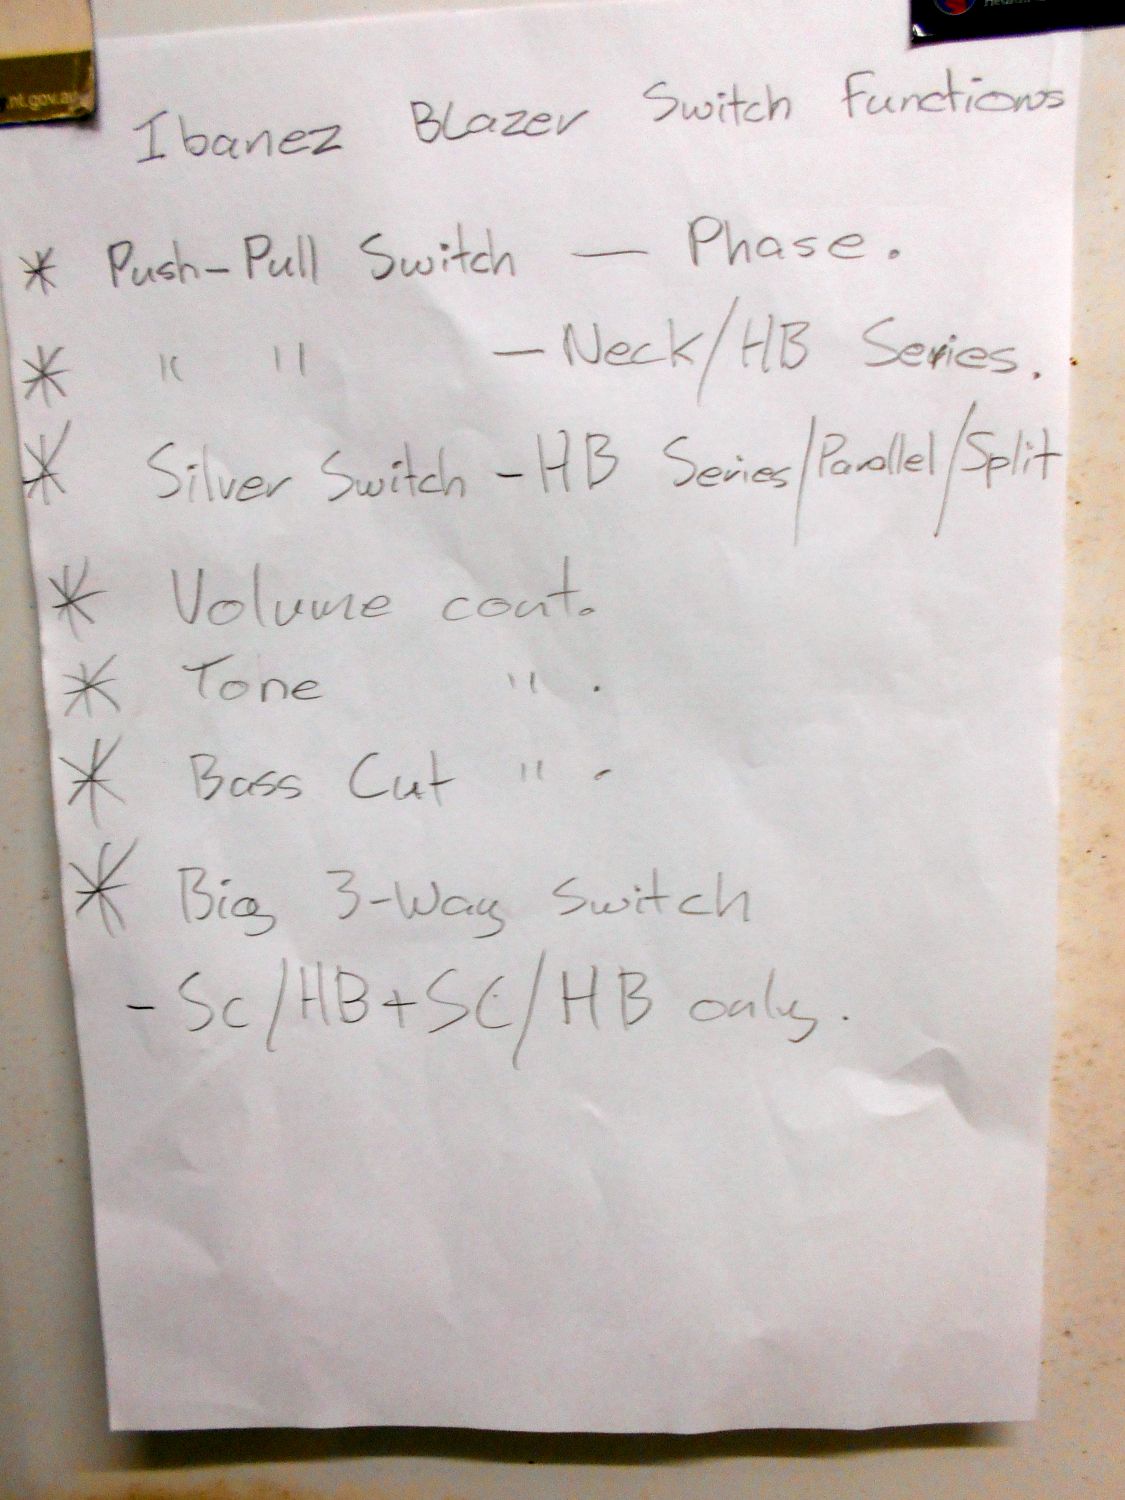 nt.gov.au
Ibanez Blazer Switch Functions
* Push-Pull Switch — Phase.
* " " — Neck/HB Series.
* Silver Switch - HB Series/Parallel/Split
* Volume cont.
* Tone " .
* Bass Cut " .
* Big 3-Way Switch
- SC/HB+SC/HB only.